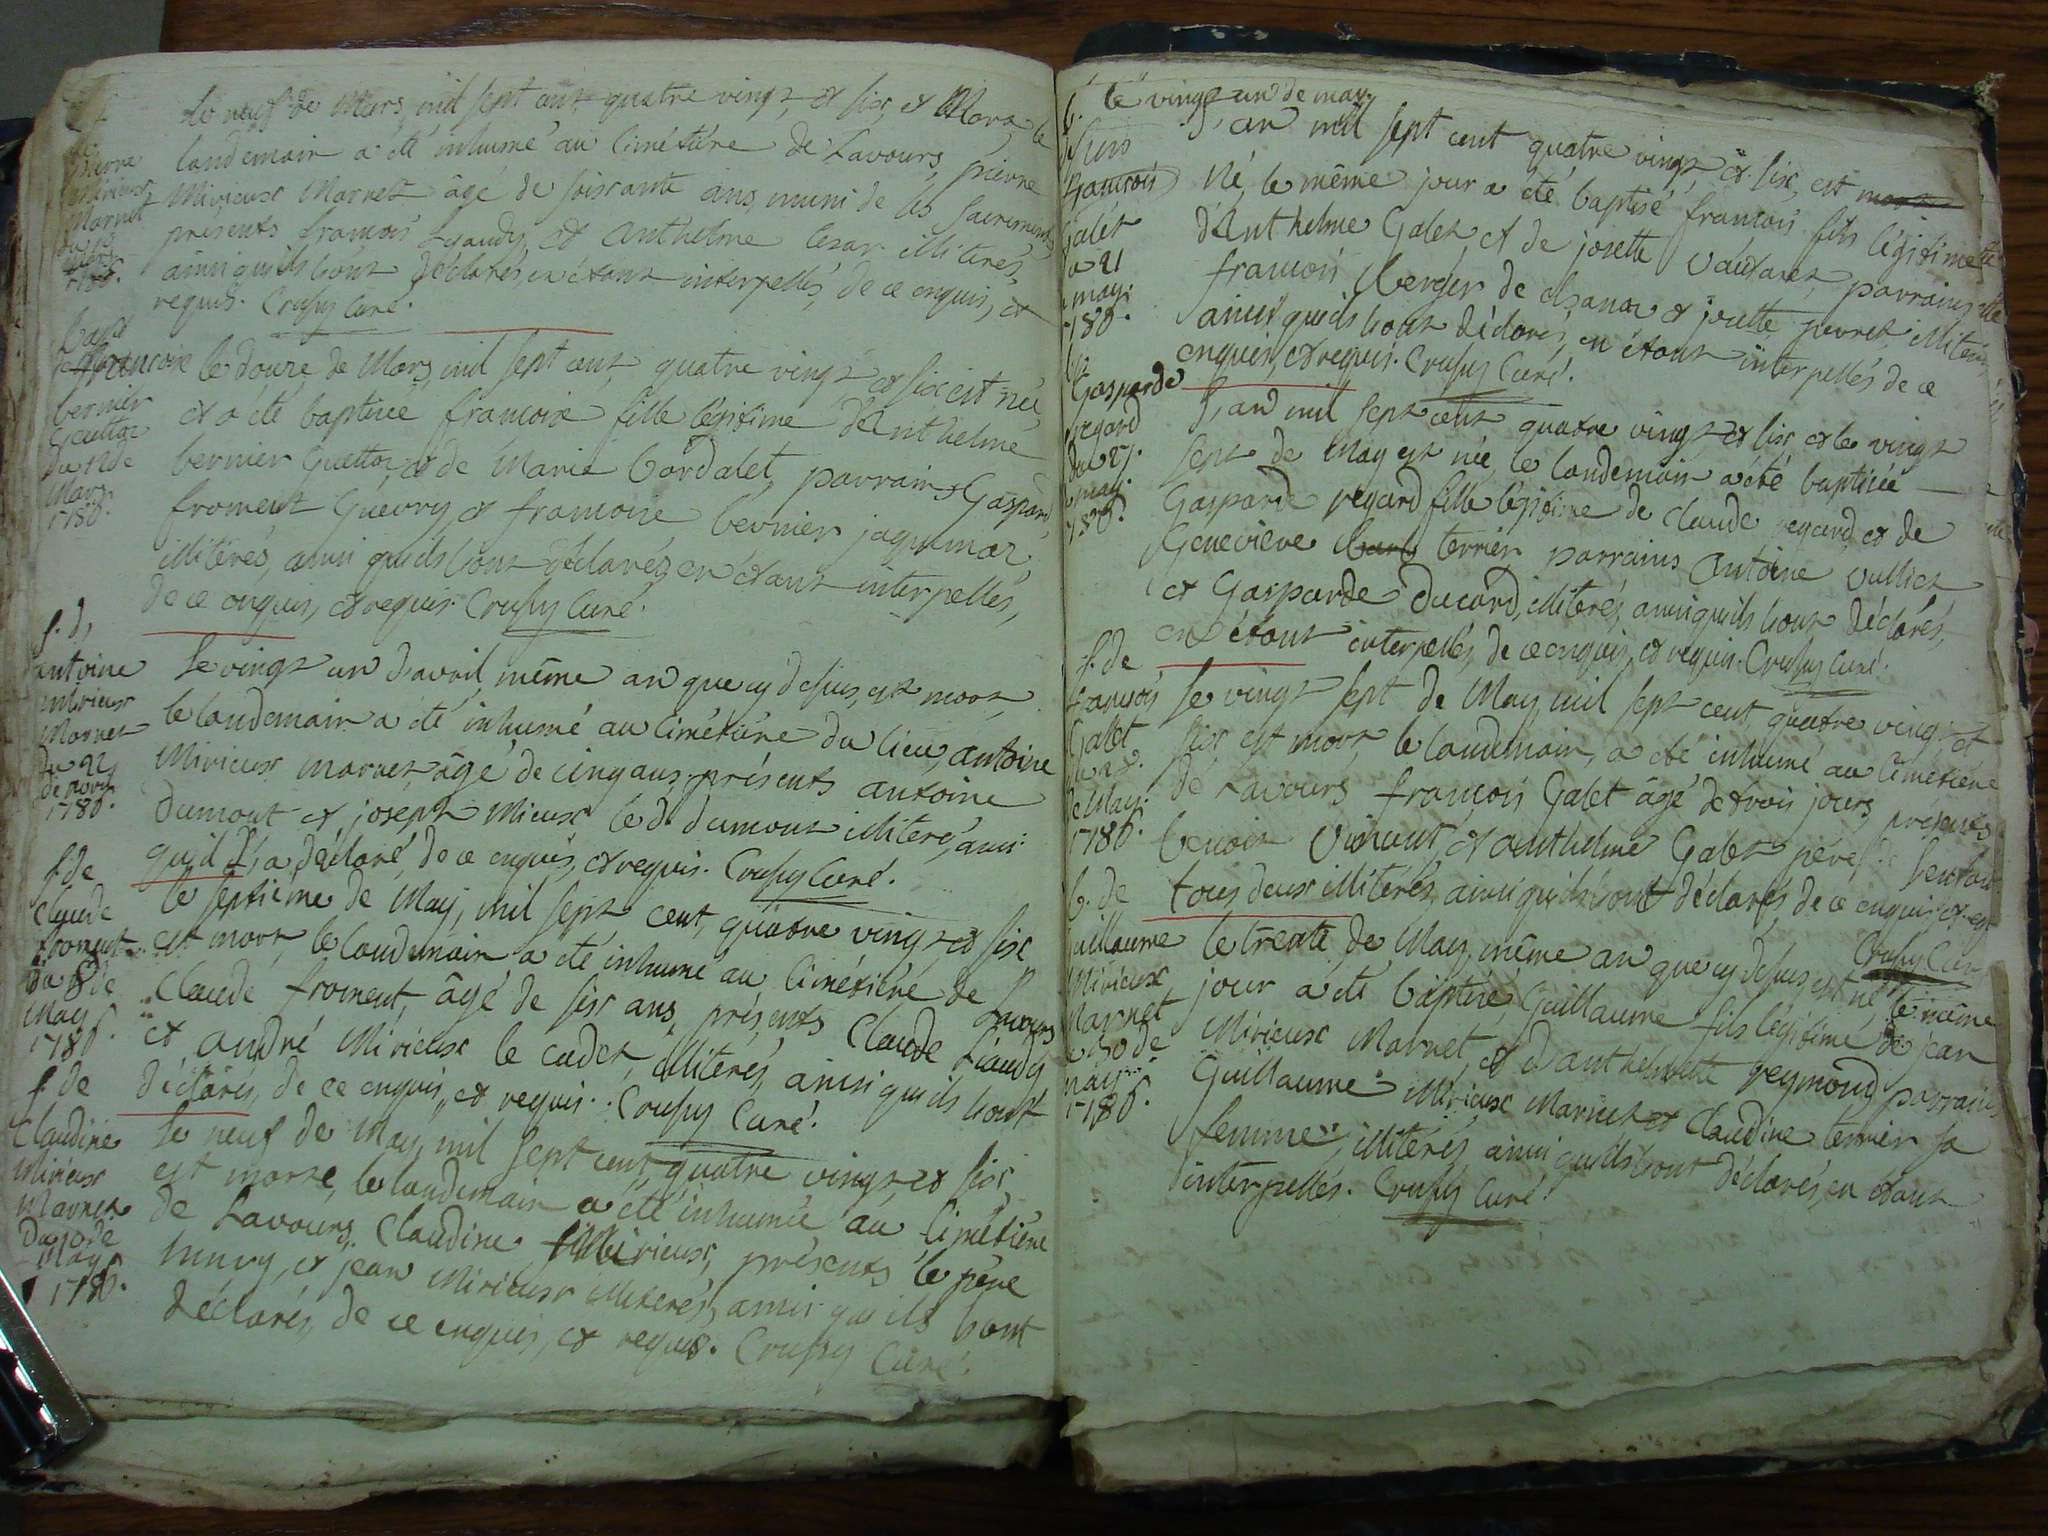 Pierre
Mirieux
Marnet
1786.
le neuf de Mars, mil sept cent quatre vingt, et six, est Mort, le
landemain a été inhumé au Cimétiére de Lavours, pierre
Mirieux Marnet âgé de soixante ans, muni de ses sacrements,
présents francois Lyaudy, et anthelme Cesar illiterés,
ainsi quils l'ont déclarés, en étant interpellés, de ce enquis, et
requis. Crussy Curé.
Bapt
de francoise
bernier
Guettaz
du 12 de
Mars.
1786.
le douze de Mars, mil sept cent, quatre vingt et six est née
et a été baptisée francoise fille légitime d'Anthelme
bernier Guettaz et de Marie Cordalet, parrains Gaspard
froment Guevry, et francoise bernier jaquemaz,
illitérés, ainsi quils l'ont déclarés, en étant interpellés,
de ce enquis, et requis. Crussy Curé.
s. d,
antoine
mirieux
Marnet
du 22
de Avril
1786.
le vingt un d'avril, même an que cy dessus, est mort,
le landemain a été inhumé au Cimétiére du lieu, antoine
Mirieux marnet, âgé de cinq ans, présents antoine
Dumont et joseph Mieux le d. dumont illiteré, ainsi
quil l'a déclaré, de ce enquis, et requis. Crussy Curé.
s. de
Claude
froment
du 8 de
May
1786.
le septieme de May, mil sept cent, quatre vingt et six
est mort, le landemain a été inhumé au Cimétiére de Lavours
Claude froment, âgé de six ans, présents Claude Liaudy
et andré Mirieux le cadet, illitérés, ainsi quils l'ont
déclarés, de ce enquis, et requis. Crussy Curé.
s. de
Claudine
Mirieux
Marnet
du 10 de
May
1786.
le neuf de May, mil sept cent, quatre vingt, et six,
est morte, le landemain a été inhumée au Cimétiére
de Lavours, Claudine Mirieux, présents le père
et jean Mirieux illiterés, ainsi quils l'ont
déclarés, de ce enquis, et requis. Crussy Curé.
b.
francois
Galet
du 21
may.
1786.
le vingt un de may
L'an mil sept cent quatre vingt, et six, est mort
Né, le même jour a été baptisé francois fils légitime
d'Anthelme Galet et de josette Vautaret, parrains
francois berger de chanaz et josette perret, illiterés
ainsi quils l'ont déclarés, en étant interpellés de ce
enquis, et requis. Crussy Curé.
Gasparde
regard
du 27.
may.
1786.
L'an mil sept cent quatre vingt et six et le vingt
sept de May est née, le landemain a été baptisée
Gasparde regard fille légitime de claude regard et de
Geneviéve terrier, parrains Antoine Vulliet
et Gasparde Ducord, illiterés, ainsi quils l'ont déclarés,
en étant interpellés, de ce enquis, et requis. Crussy Curé.
s. de
francois
Galet
du 28.
de May.
1786.
le vingt sept de May, mil sept cent quatre vingt, et
six est mort, le landemain, a été inhumé au Cimetiére
de Lavours francois Galet âgé de trois jours, présents
benoit et anthelme Galet père, de l'enfant
tous deux illitérés, ainsi quils l'ont déclarés, de ce enquis, et req
Crussy Curé
b. de
Guillaume
Mirieux
Marnet
du 30 de
may
1786.
le trente de May, même an que cy dessus, est né, le même
jour a été baptisé, Guillaume fils légitime de jean
Mirieux Marnet, et d'anthelmette reymond, parrains
Guillaume Mirieux Marnet et Claudine terrier sa
femme, illitérés, ainsi quils l'ont déclarés, en étant
interpellés. Crussy Curé.